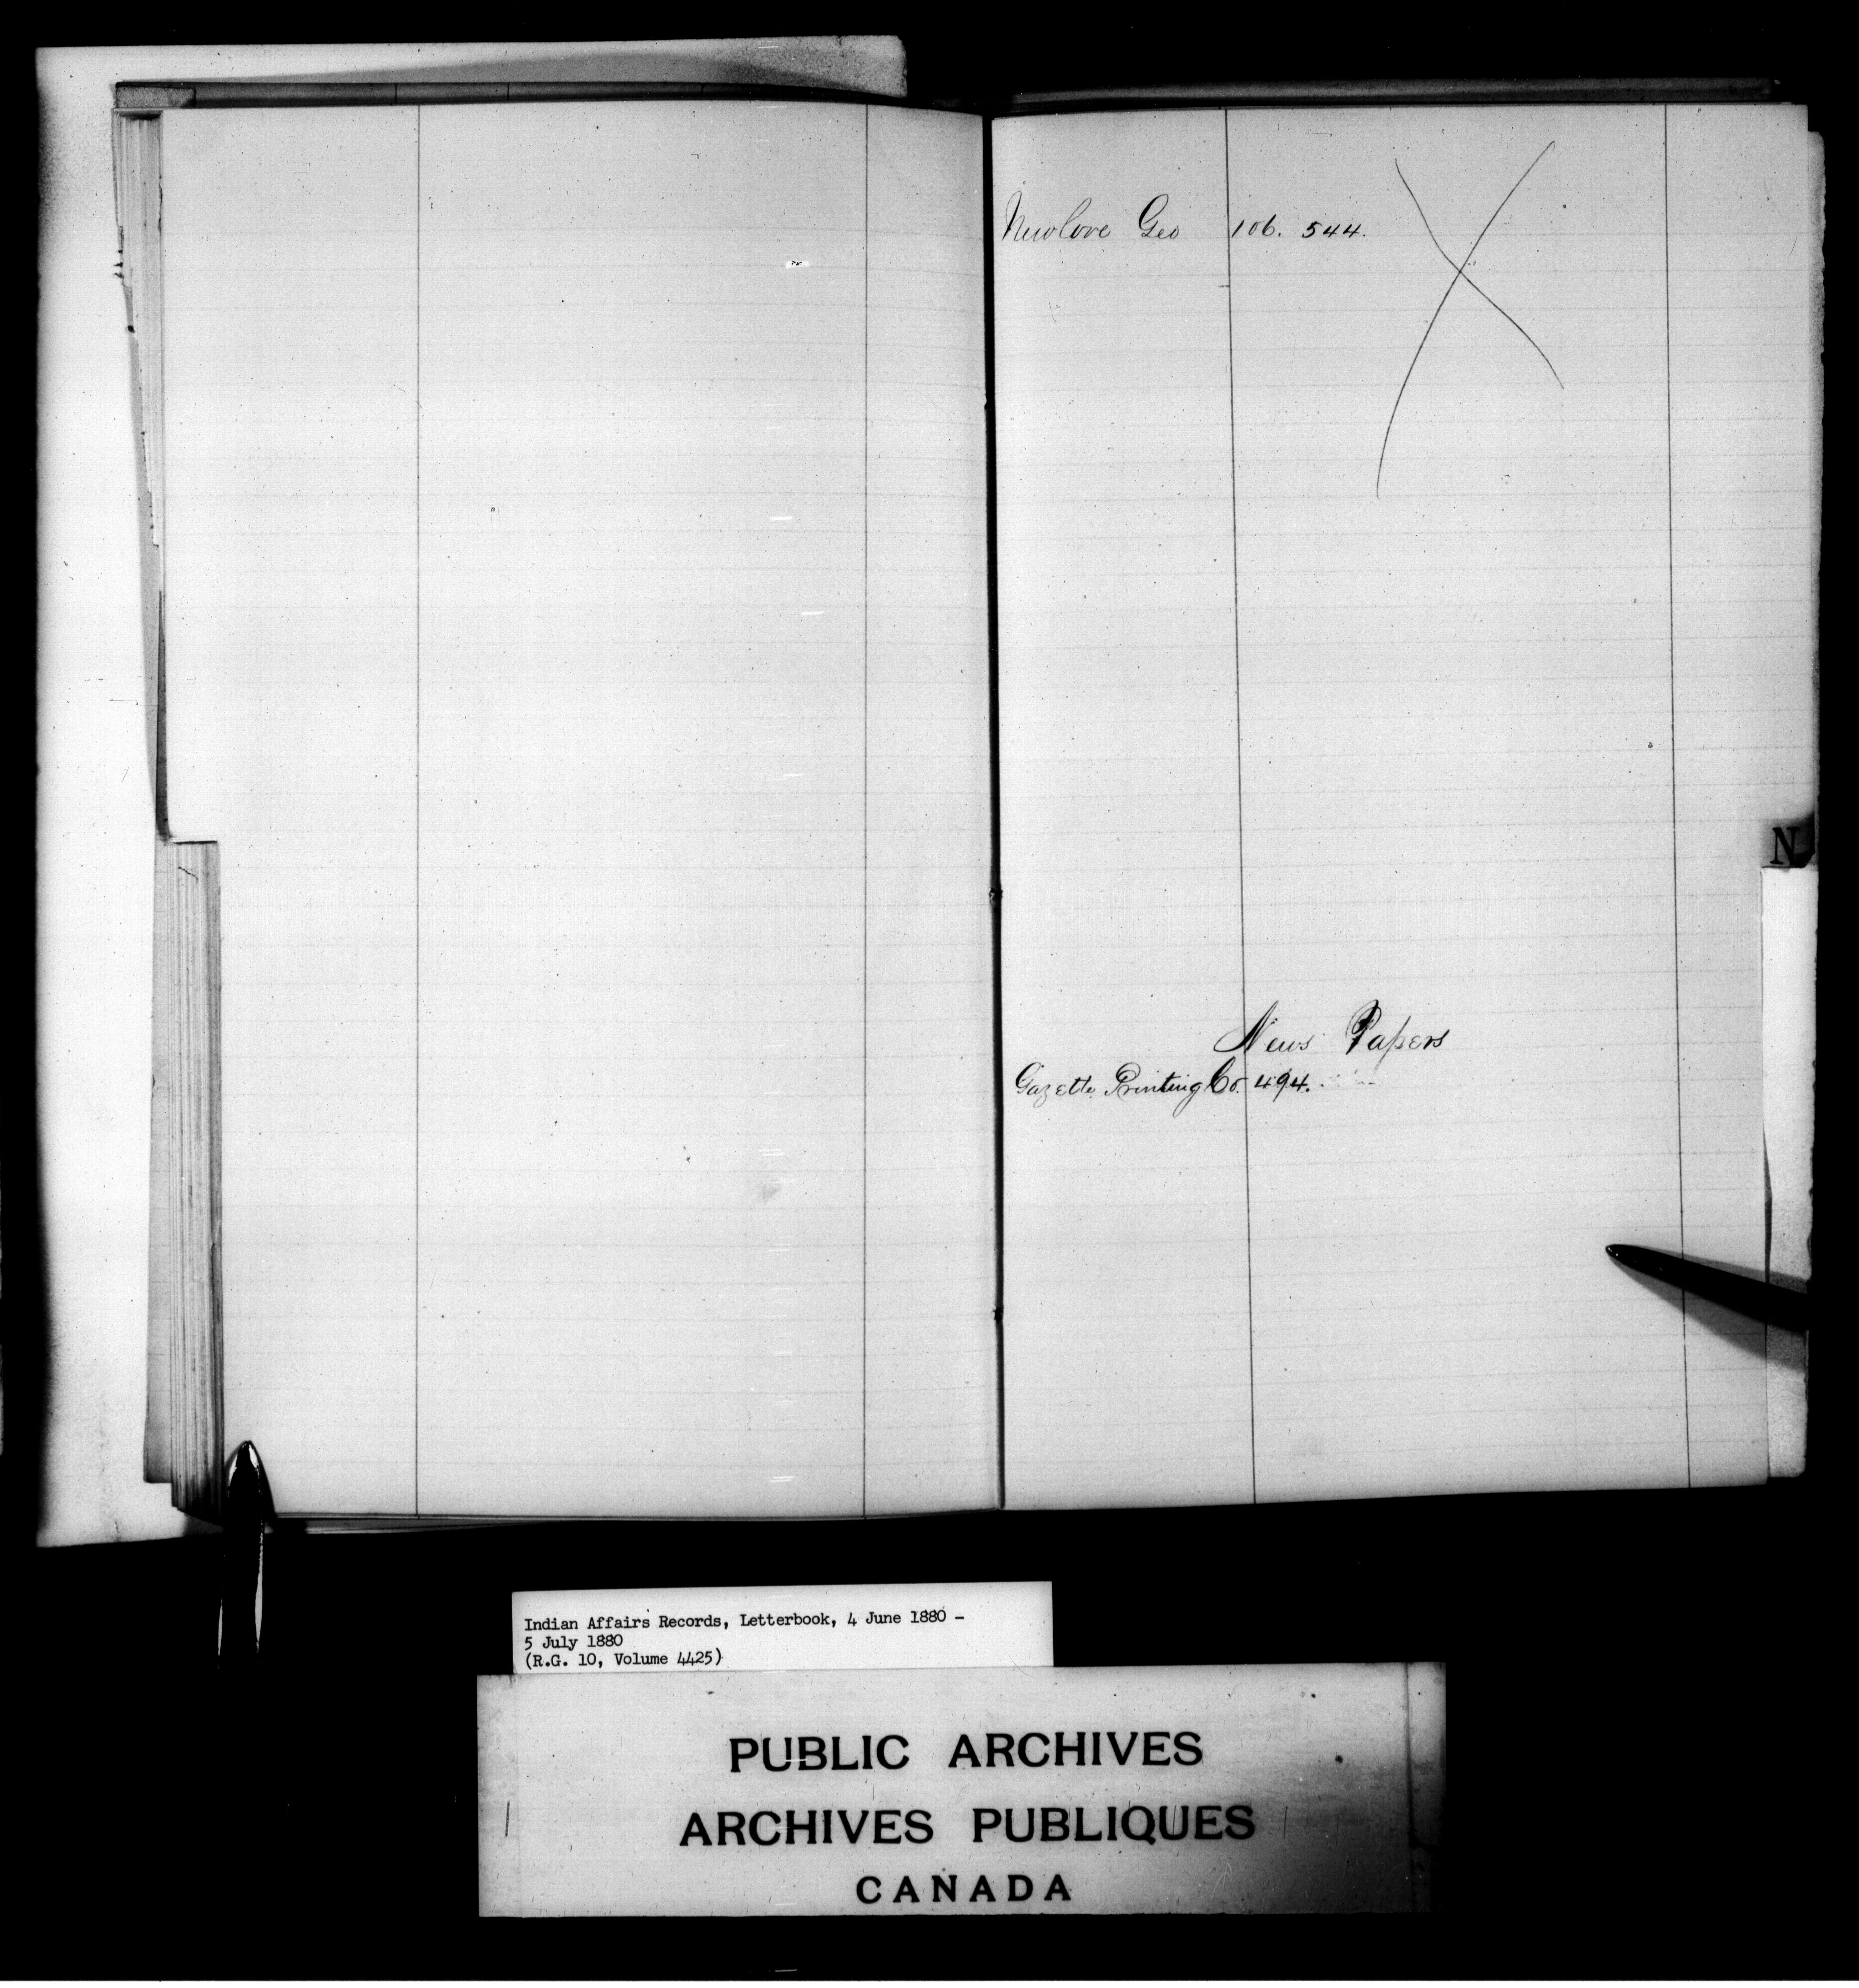 Newlove Geo 106. 544.
N
News Papers
Gazette Printing Co. 494.
Indian Affairs Records, Letterbook, 4 June 1880 –
5 July 1880
(R.G. 10, Volume 4425)
PUBLIC ARCHIVES
ARCHIVES PUBLIQUES
CANADA